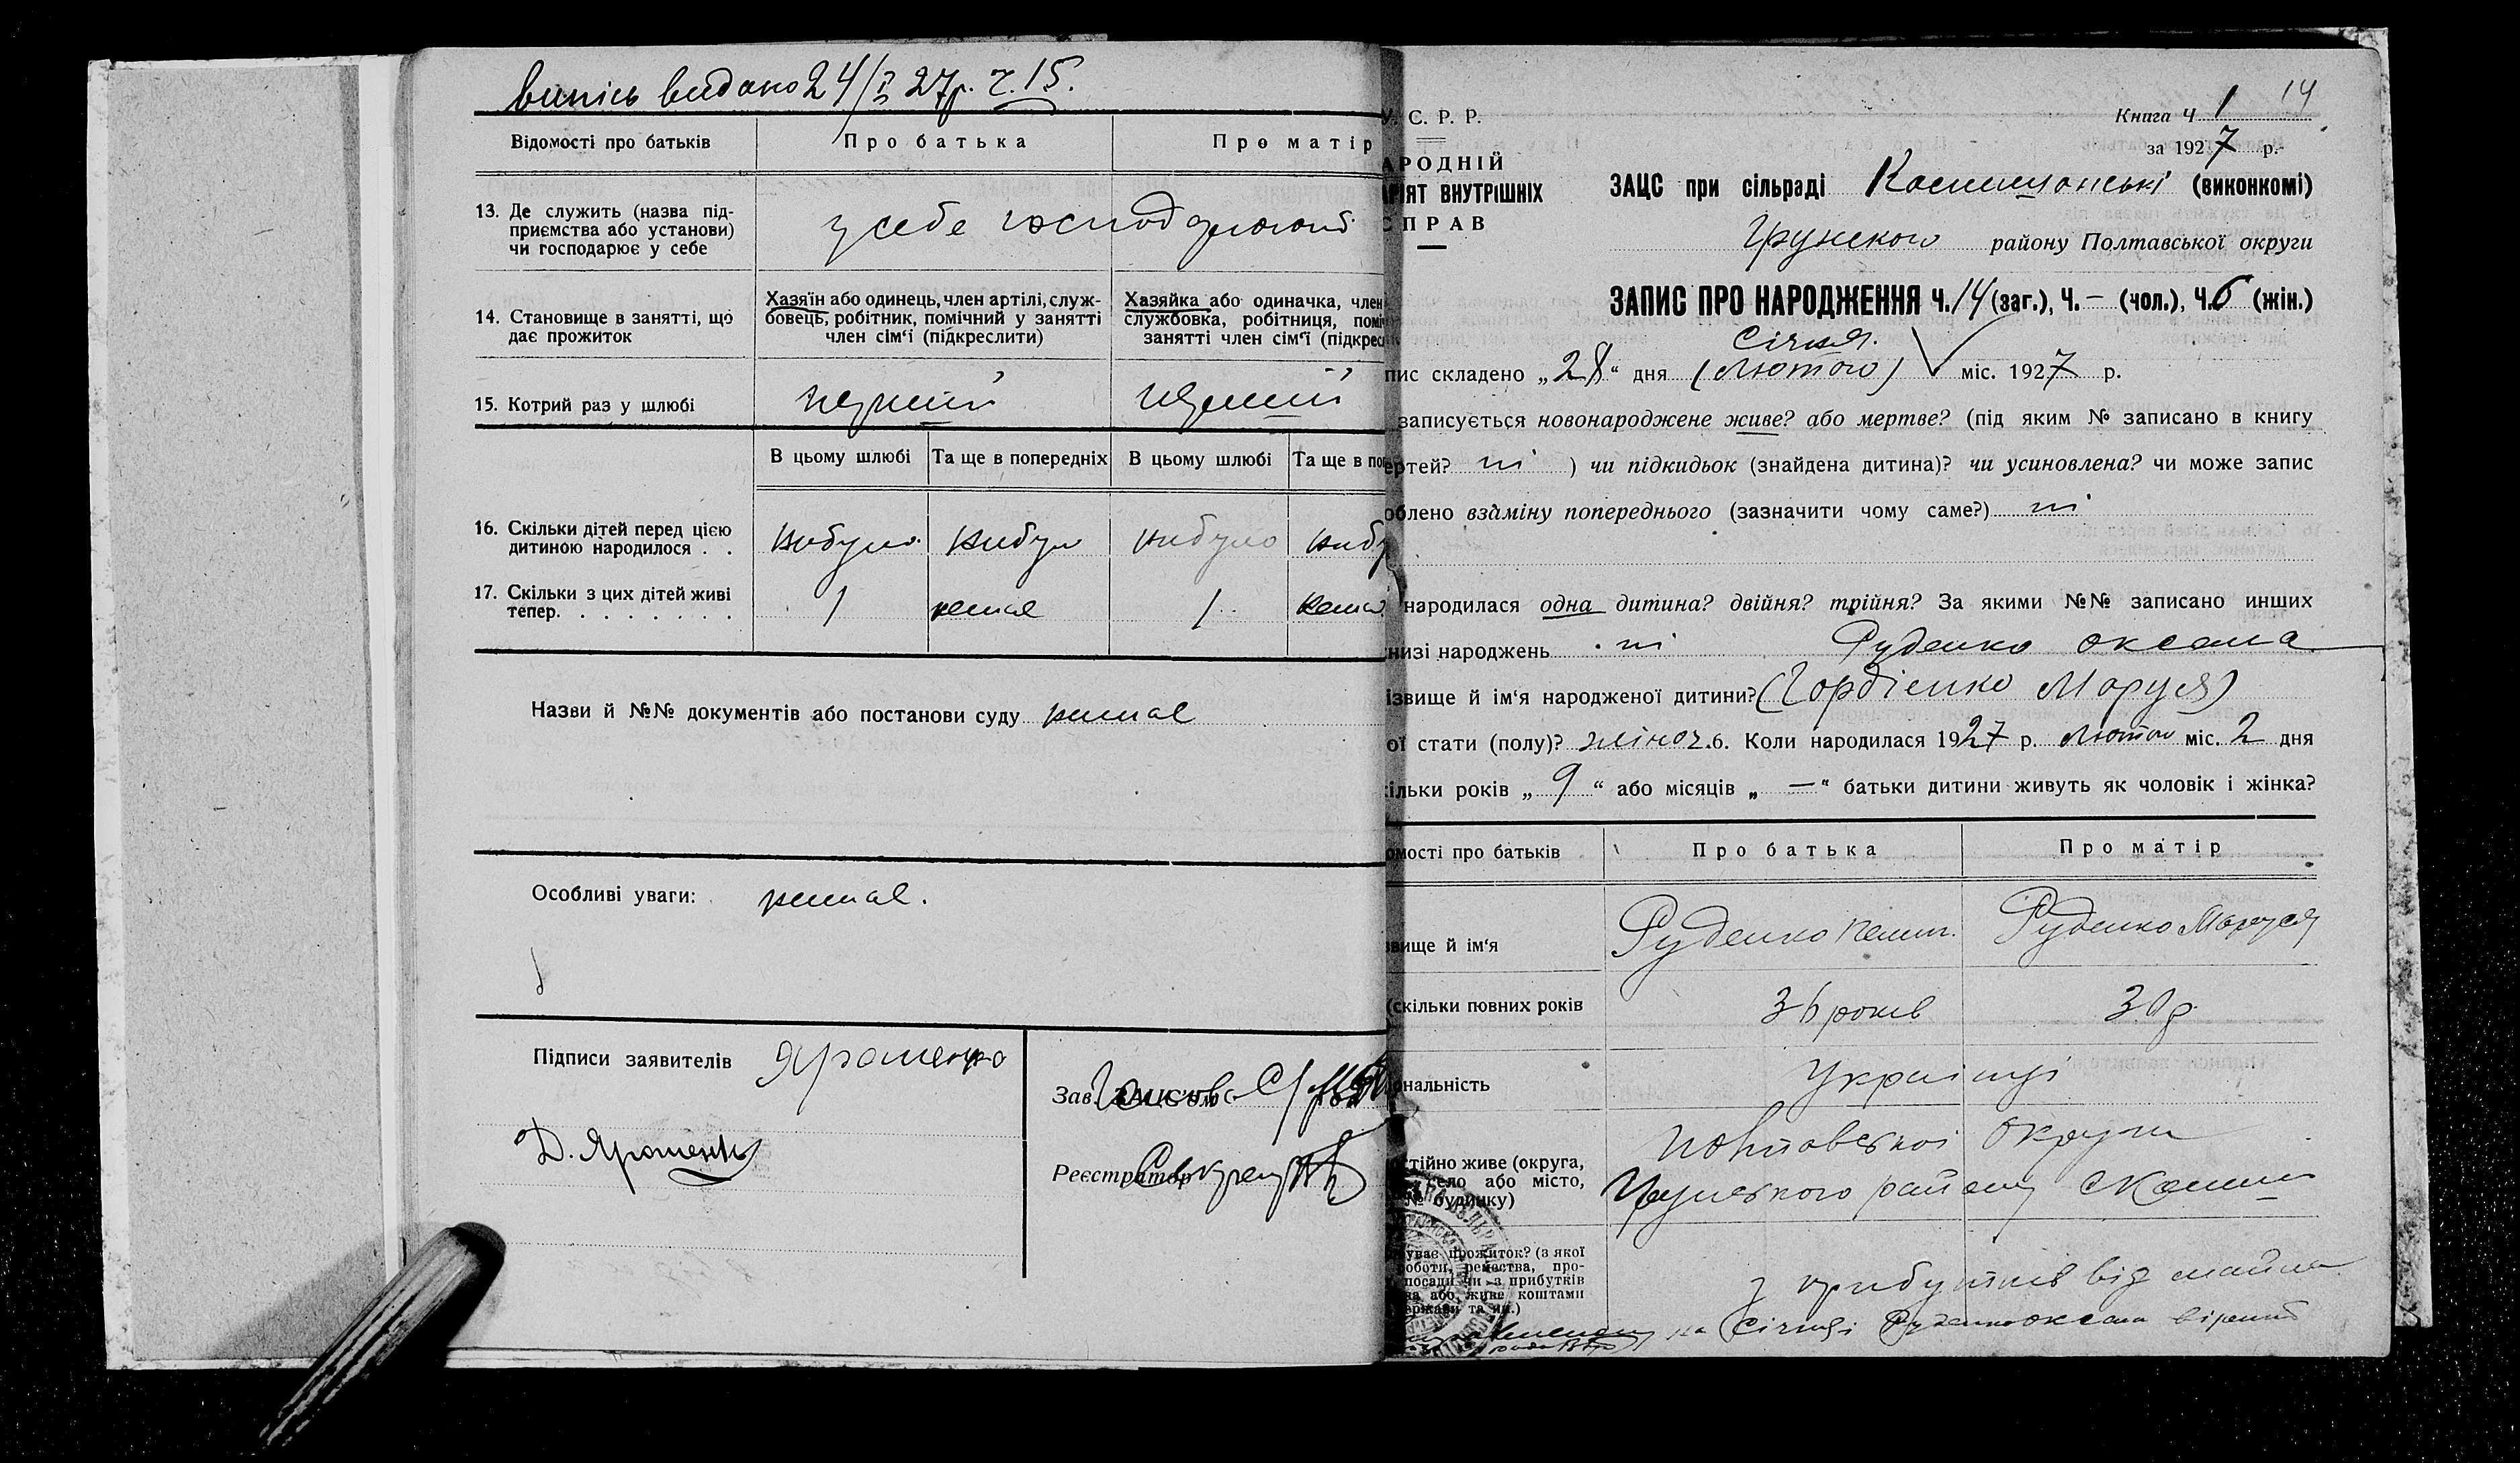 випісь видано 24/I 27р. ч. 15.
Відомості про батьків
Про батька
Про матір
13. Де служить (назва під-
приємства або установи)
чи господарює у себе
у себе господарюють
14. Становище в занятті, що
дає прожиток
Хазяїн або одинець, член артілі, служ-
бовець, робітник, помічний у занятті
член сім'ї (підкреслити)
Хазяйка або одиначка, член
службовка, робітниця, поміч
занятті член сім'ї (підкрес
15. Котрий раз у шлюбі
перший
перший
В цьому шлюбі
Та ще в попередніх
В цьому шлюбі
Та ще в по
16. Скільки дітей перед цією
дитиною народилося . .
небуло
небуло
небуло
небу
17. Скільки з цих дітей живі
тепер. . . . . . . .
1
немає
1
нема
Назви й №№ документів або постанови суду немає
Особливі уваги: немає.
Підписи заявителів Ярошенко
Д. Ярошенко
Зав. ЗАЦС'ом
Реєстратор
У. С. Р. Р.
АРОДНІЙ
АРІЯТ ВНУТРІШНІХ
СПРАВ
14
Книга Ч 1
за 1927 р.
ЗАЦС при сільраді (виконкомі)
Грунського району Полтавської округи
ЗАПИС ПРО НАРОДЖЕННЯ Ч. 14 (заг.), Ч. – (чол.), Ч. 6 (жін.)
Січня.
пис складено „28“ дня (Лютого) міс. 1927 р.
записується новонароджене живе? або мертве? (під яким № записано в книгу
ертей? ні ) чи підкидьок (знайдена дитина)? чи усиновлена? чи може запис
облено взаміну попереднього (зазначити чому саме?) ні
народилася одна дитина? двійня? трійня? За якими №№ записано инших
низі народжень ні Руденко Оксана
ізвище й ім'я народженої дитини? (Гордієнко Маруся)
ої стати (полу)? жіноч. 6. Коли народилася 1927 р. Лютого міс. 2 дня
ільки років „9“ або місяців „—“ батьки дитини живуть як чоловік і жінка?
омості про батьків
Про батька
Про матір
звище й ім'я
Руденко
Руденко Маруся
(скільки повних років
36 років
30 р.
іональність
Українці
стійно живе (округа,
село або місто,
№ будинку)
Полтавської Округи
Грунського району
ував прожиток? (з якої
роботи, ремества, про-
посади чи з прибутків
на або живе коштами
ержави та ин.)
з прибутків від майна
на січні Руденко Оксана вірити